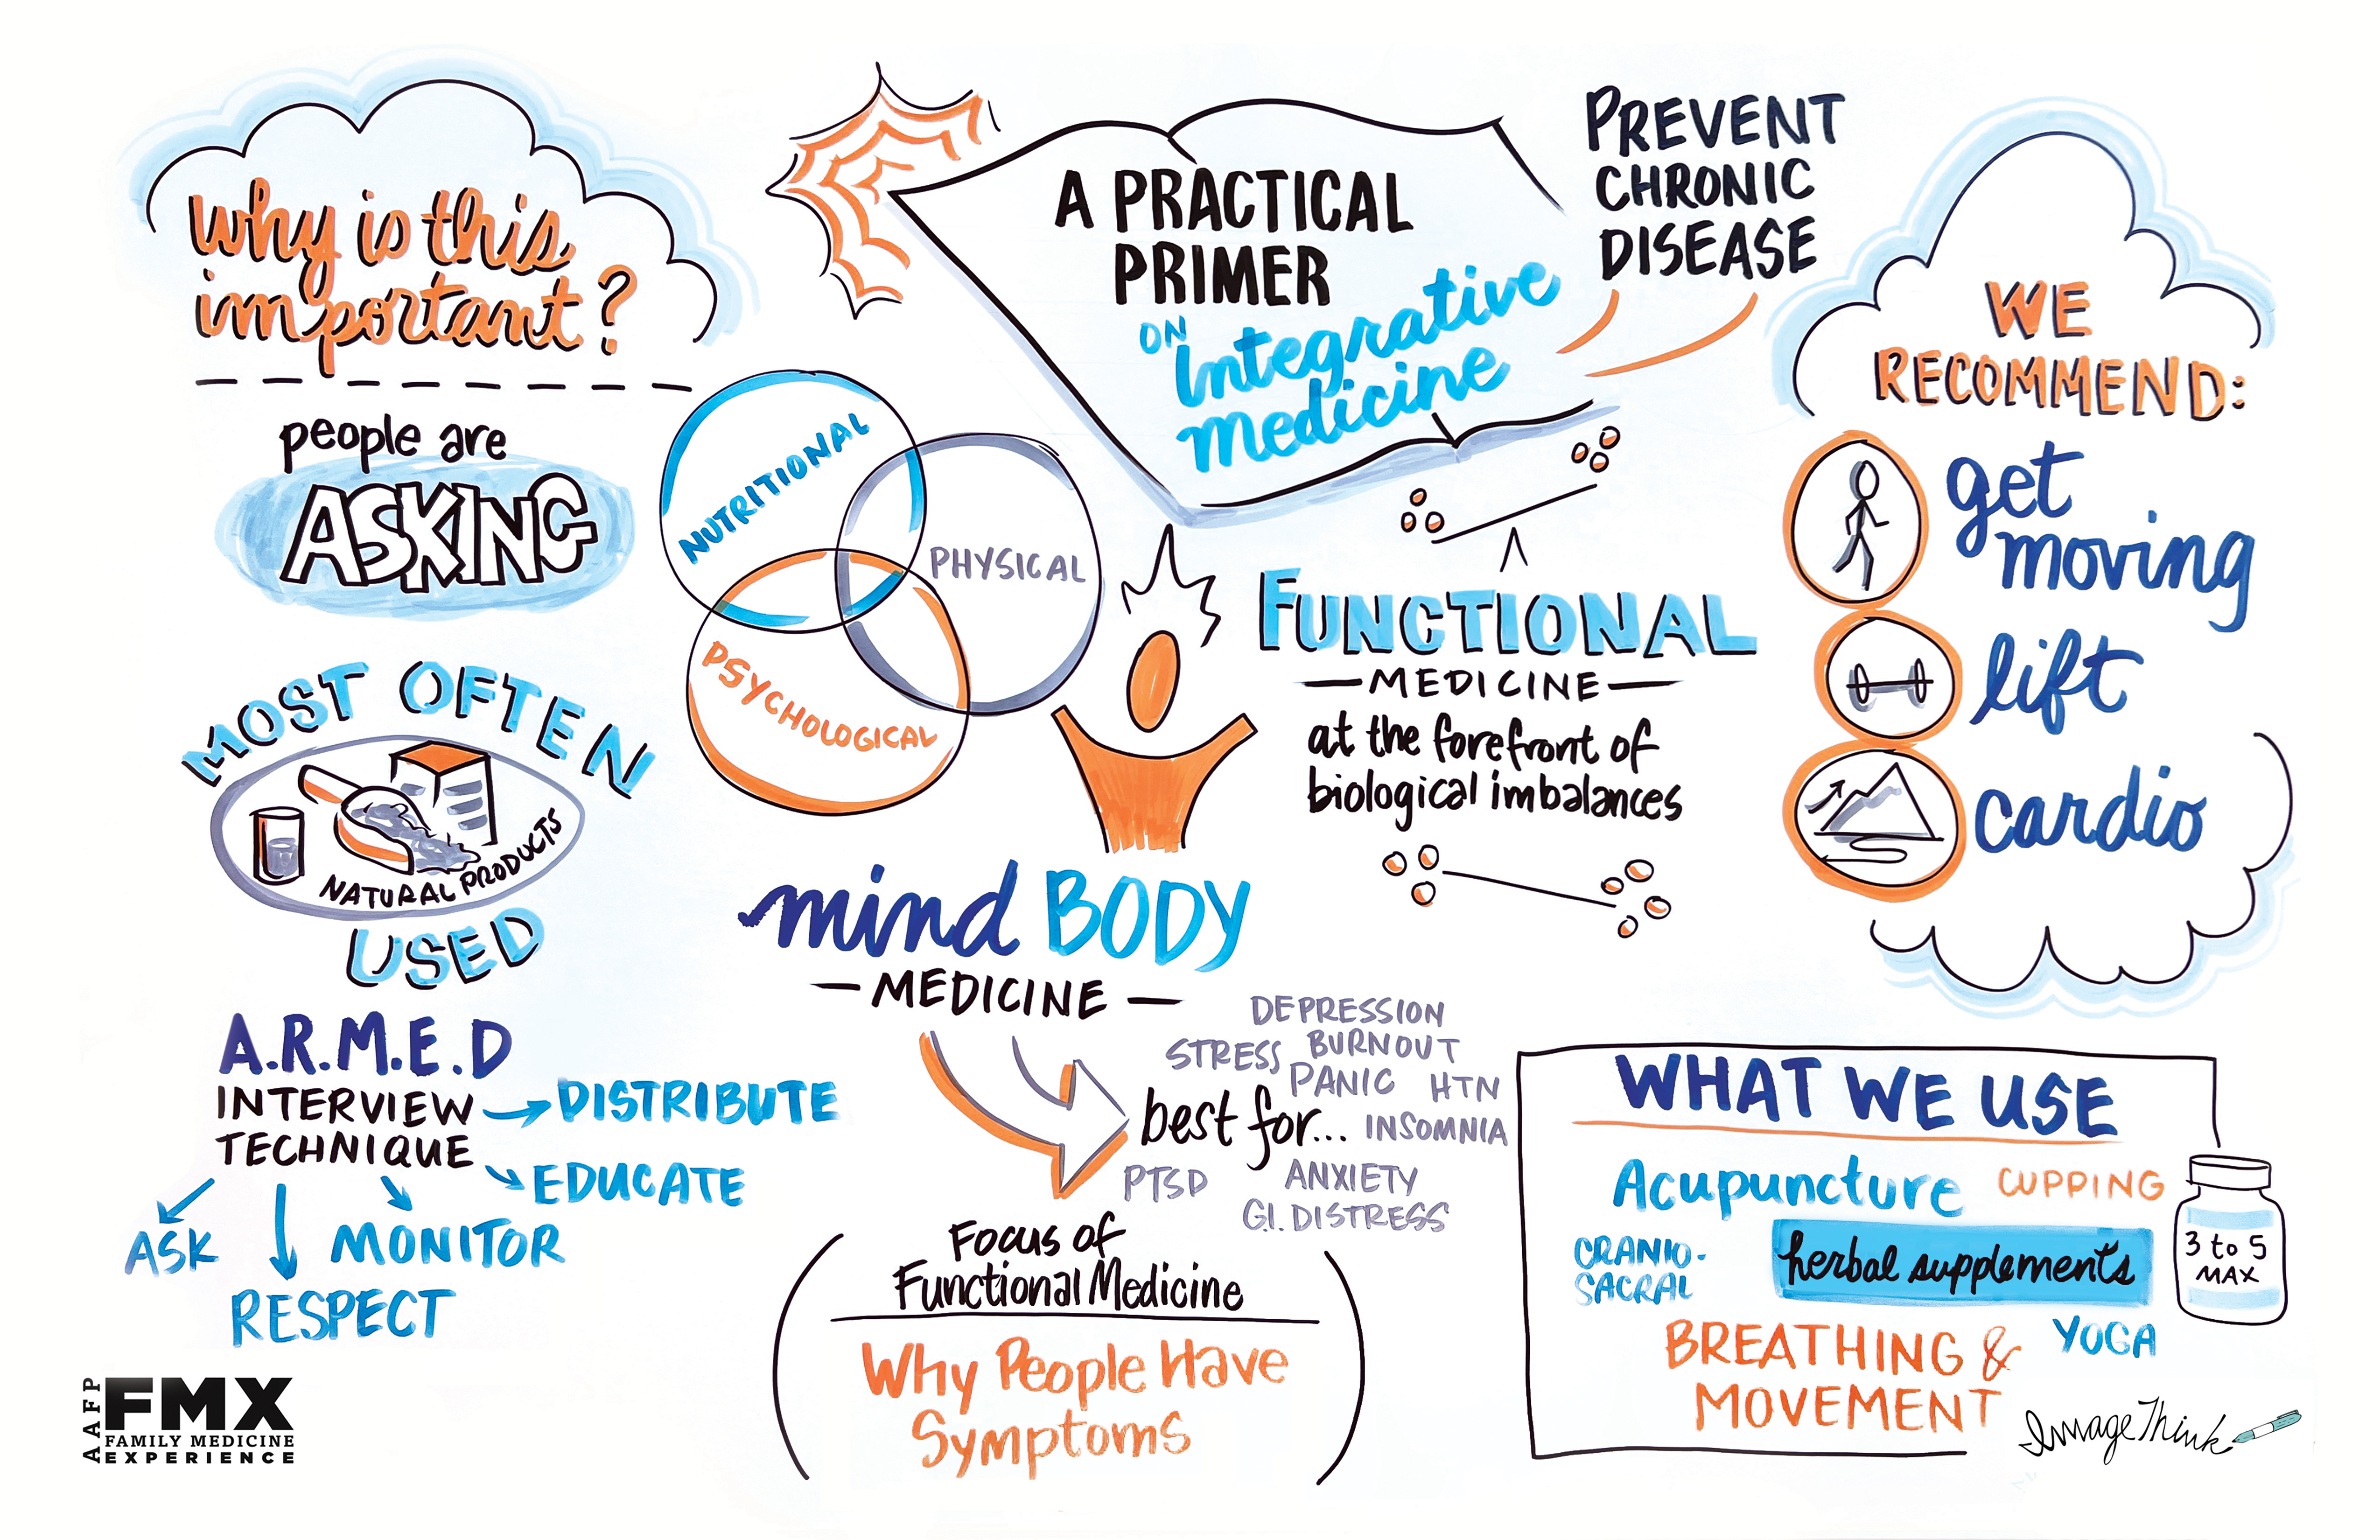 why is this
important?
people are
ASKING
MOST OFTEN
NATURAL PRODUCTS
USED
A.R.M.E.D
INTERVIEW
TECHNIQUE
DISTRIBUTE
EDUCATE
ASK
MONITOR
RESPECT
AAFP
FMX
FAMILY MEDICINE
EXPERIENCE
A PRACTICAL
PRIMER
ON Integrative
medicine
PREVENT
CHRONIC
DISEASE
NUTRITIONAL
PHYSICAL
PSYCHOLOGICAL
FUNCTIONAL
— MEDICINE —
at the forefront of
biological imbalances
mind BODY
— MEDICINE —
best for...
DEPRESSION
STRESS BURNOUT
PANIC HTN
INSOMNIA
PTSD ANXIETY
G.I. DISTRESS
Focus of
Functional Medicine
Why People Have
Symptoms
WE
RECOMMEND:
get
moving
lift
cardio
WHAT WE USE
Acupuncture CUPPING
CRANIO-
SACRAL
herbal supplements
3 to 5
MAX
BREATHING &
MOVEMENT
YOGA
ImageThink